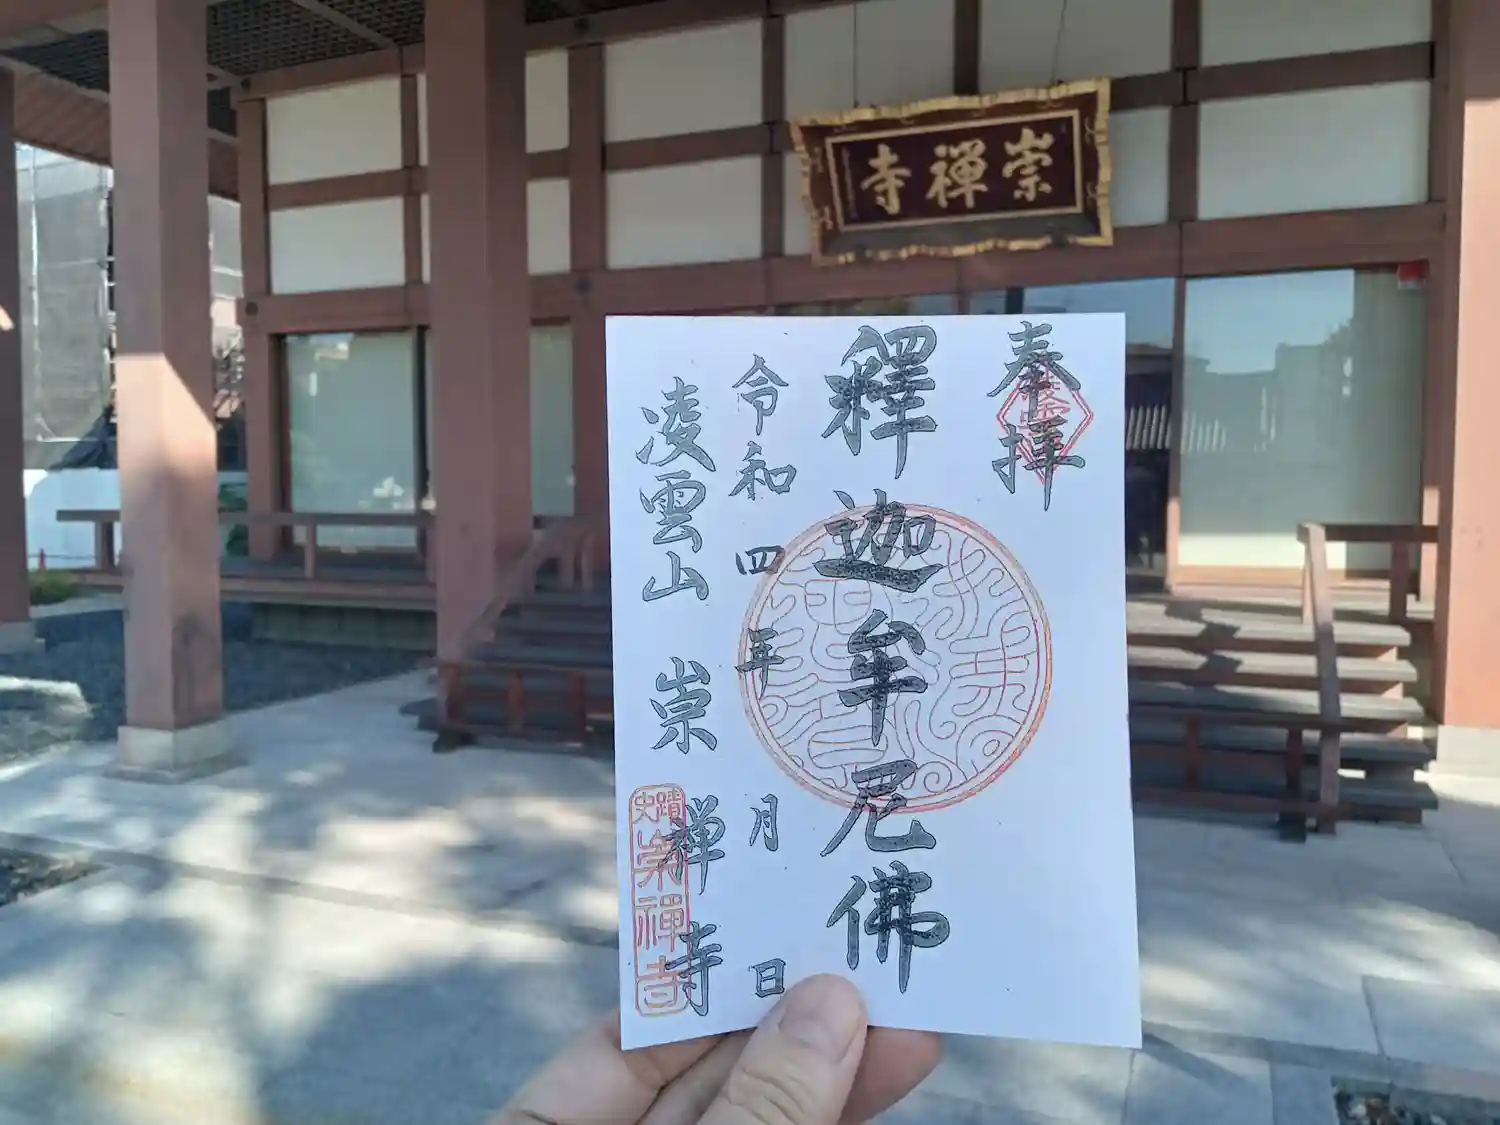 崇禅寺
奉拝
釋迦牟尼佛
令和四年 月 日
凌雲山 崇禅寺
史蹟
崇禅寺